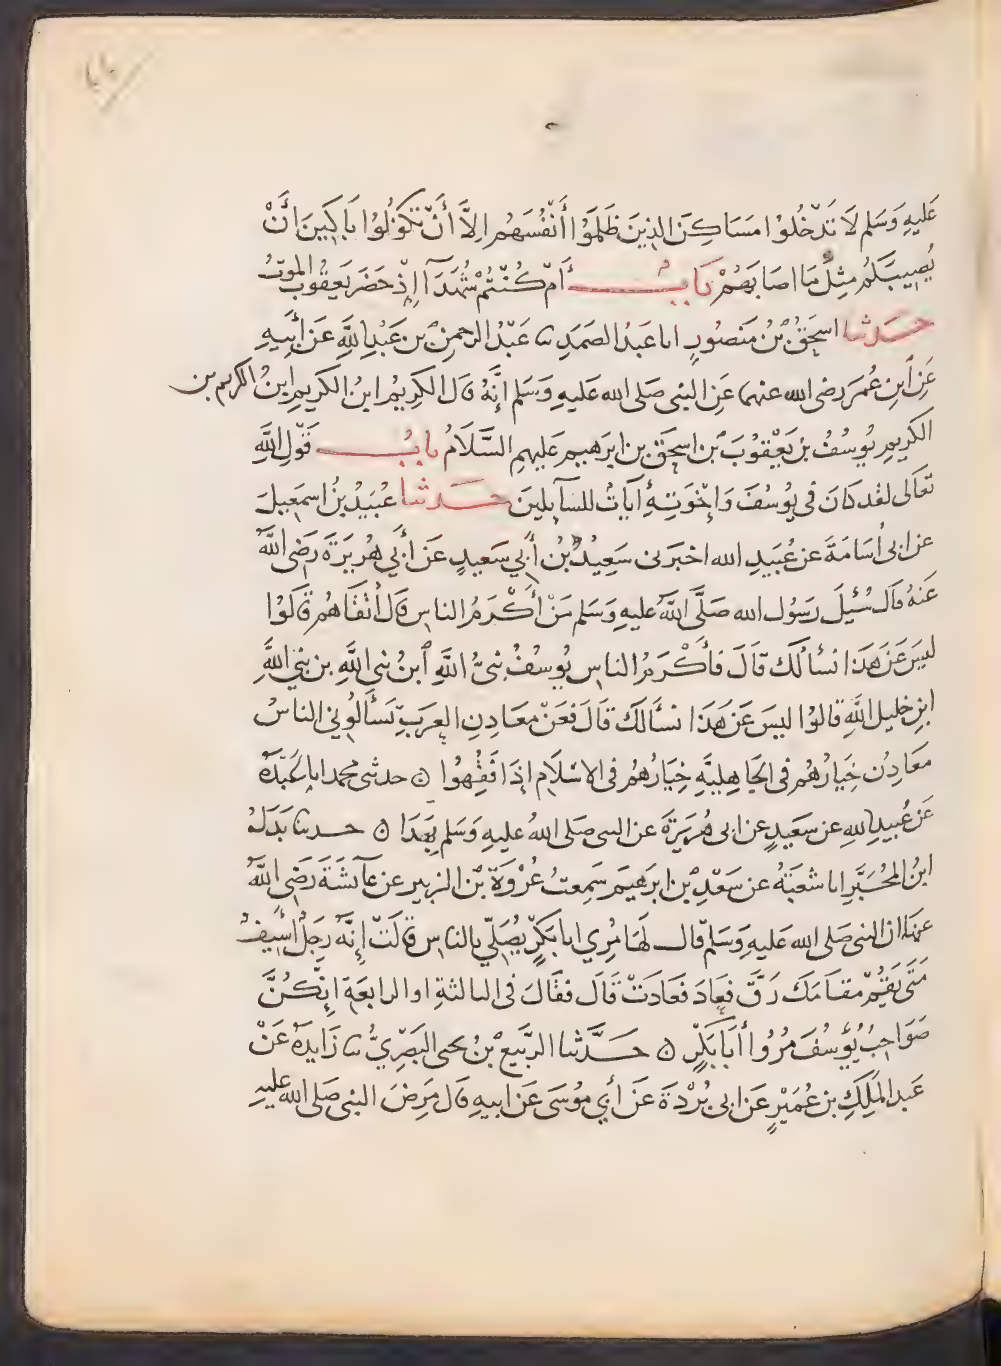 ٤٤
عليهِ وَسَلم لَا تَدْخُلُوا مَسَاكِنَ الذينَ ظَلَمُوا أَنْفُسَهُم اِلَّا أَنْ تَكُوْنُوا بَاكِينَ أَنْ
يُصِيبَكُم مِثلُ مَا اصَابَهُمْ بَابُ أَمْ كُنْتُمْ شُهَدَآ إِذْ حَضَرَ يَعقُوبَ الموتُ
حَدثنا اسحَقُ بْنُ مَنصُورٍ انا عَبدُ الصَمَدِ نا عَبْدُ الرحمنِ بن عَبْدِ اللَّهِ عَن أَبِيهِ
عَنِ ابنِ عُمَرَ رضى الله عنهما عَنِ النبى صَلى الله عَليهِ وَسَلم إِنَّهُ قَالَ الكَرِيمُ ابنُ الكَرِيمِ ابنُ الكريم بن
الكَرِيمِ يُوسُفُ بنُ يَعْقُوبَ بْن اسحَقَ بن ابرَهِيم عَليهِم السَّلَامُ بابُ قَوْلِ اللَّهِ
تعَالى لقد كانَ فى يُوسُفَ وَإِخْوَتِهِ آيَاتٌ للسآيلينَ حَدثنا عُبَيْدُ بنُ اسمَعِيلَ
عن ابى أُسَامَةَ عن عُبَيدِ الله اخبرَنى سَعِيدُ بْنُ أَبي سَعيدٍ عَن أَبي هُرَيرَةَ رَضى اللَّهُ
عَنهُ قال سُئِلَ رَسُول الله صَلَّى اللَّهُ عليهِ وَسَلم مَنْ أَكْرَمُ الناسِ قَالَ أَتْقَاهُم قَالُوا
ليسَ عَن هَذا نسأَلُكَ قَالَ فأَكْرَمُ الناسِ يُوسُفُ نبىُّ اللَّهِ ابنُ نبى اللَّهِ بن نبيِ اللَّهِ
ابنِ خليلِ اللَّهِ قالوُا ليسَ عَن هَذَا نسأَلك قَالَ فعَنْ معَادِنِ العَرَبِ تَسأَلُوني الناسُ
معَادِن خِيَارُهُم فى الجَاهِليَّةِ خِيَارُهُم فى الاسْلَامِ إِذَا فَقِهُوا ۞ حدثنى محمد انا عَبْدَةُ
عَن عُبيدِ اللهِ عن سَعِيدٍ عن ابى هُرَيرَةَ عن النبى صَلى اللهُ عليهِ وَسَلم بِهَذَا ۞ حدثنا بَدَلُ
ابنُ المحُبَّرِ انا شعبَةُ عن سَعْدِ بْن ابرَهيمَ سَمِعتُ عُرْوَةَ بْنَ الزبير عن عآئشَةَ رَضى اللَّهُ
عنهَا ان النبى صَلى الله عَليهِ وَسَلم قال لَهَا مُرِي ابا بَكْرٍ يُصَلِّي بالناسِ قَالَتْ إِنَّهُ رَجُلٌ أَسِيفٌ
مَتَى يَقُمْ مقَامَكَ رَقَّ فعَادَ فعَادَتْ قَالَ فقَالَ فى الثالثةِ او الرابعَةِ إِنَّكُنَّ
صَوَاحِبُ يُوسُفَ مُرُوا أَبَا بَكْرٍ ۞ حَدَّثنا الرَّبيعُ بْنُ يحيى البَصرِيُّ نا زَايدَةُ عَنْ
عَبدِ المَلِكِ بن عُمَيْرٍ عَن ابى بُرْدَةَ عَن أَبي مُوسَى عَن ابيهِ قَال مَرِضَ النبى صَلى الله عَليهِ